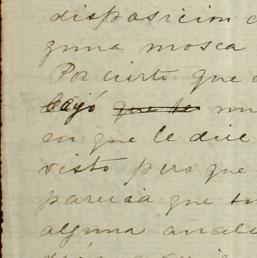 disposicion
guna mosca
Por cierto que
bajó que te
en que le dije
visto pero que
parecia que tu
alguna